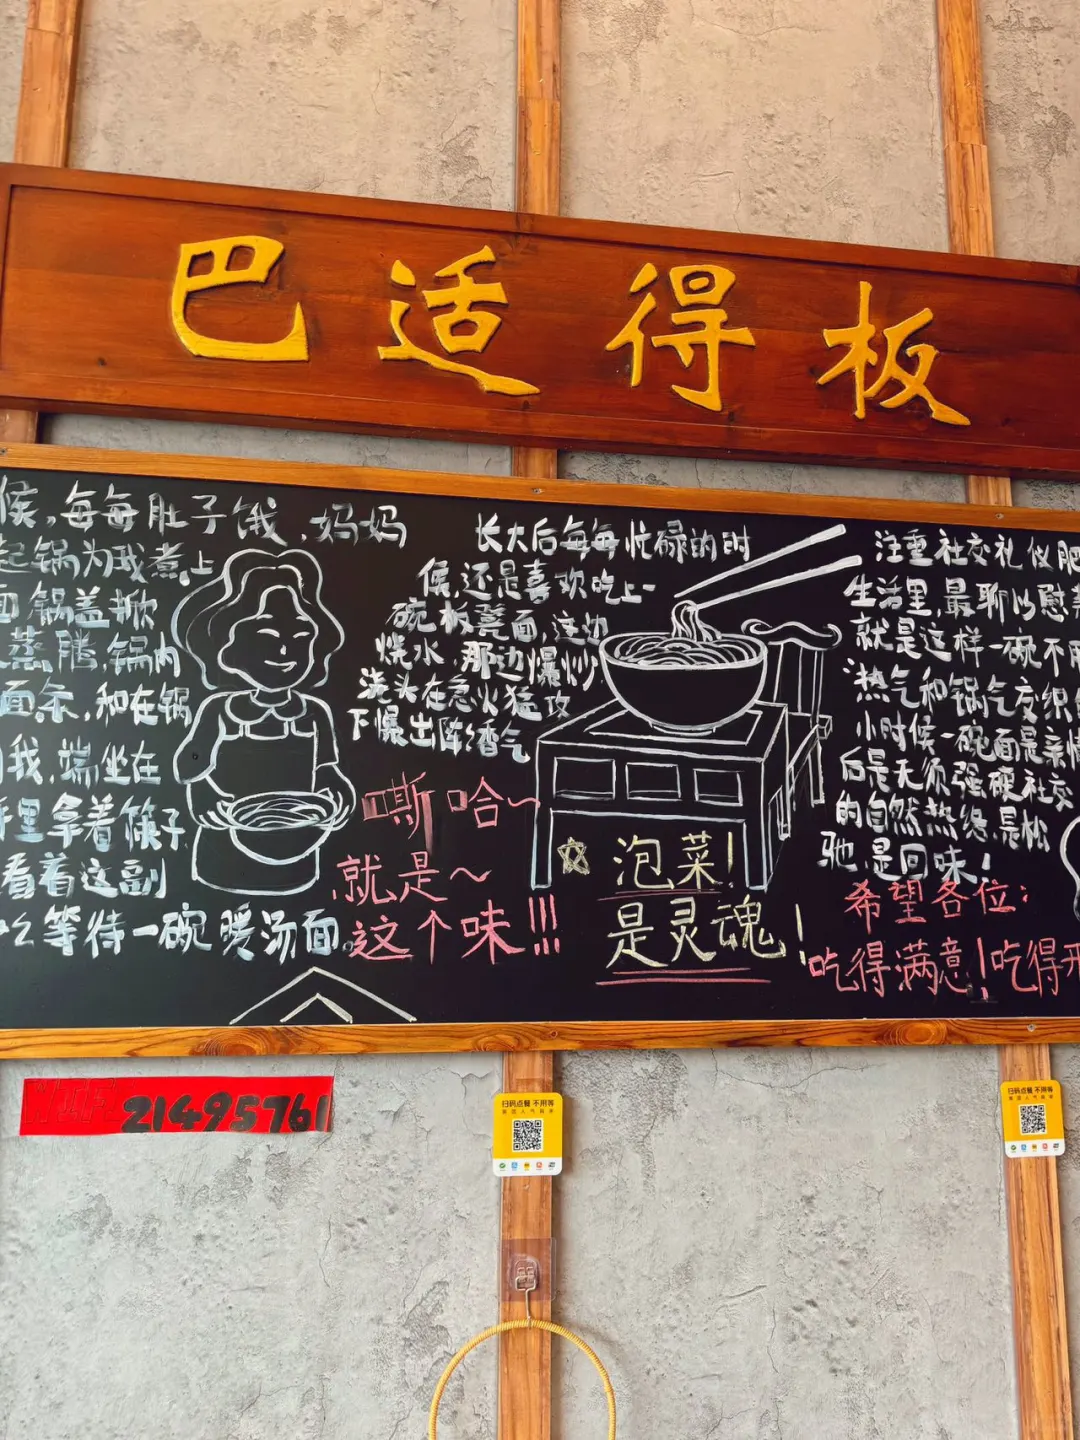 巴适得板
候,每每肚子饿,妈妈
起锅为我煮上
面锅盖掀
蒸腾,锅内
面条,和在锅
我,端坐在
里拿着筷子
看着这副
吃等待一碗暖汤面。
长大后每每忙碌的时
候,还是喜欢吃上一
碗板凳面,这边
烧水,那边爆炒
浇头在急火猛攻
下爆出阵阵香气
嘶哈~
就是~
这个味!!!
泡菜!
是灵魂!
注重社交礼仪肥
生活里,最聊以慰
就是这样一碗不用
热气和锅气交织
小时候一碗面是亲情
后是无须强硬社交
的自然热络,是松
驰,是回味!
希望各位:
吃得满意!吃得开
21495761
扫码点餐 不用等
扫码点餐 不用等